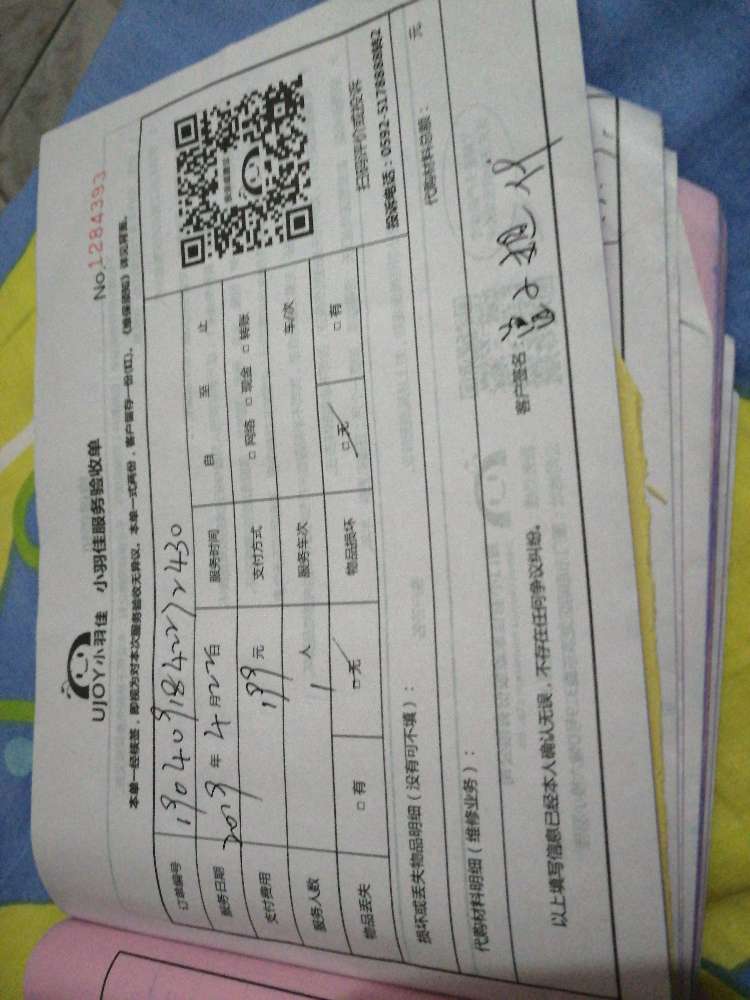 UJOY小羽佳 小羽佳服务验收单
No.1284393
本单一经续签，即视为对本次服务验收无异议。本单一式两份，客户留存一份(红)。《维保须知》详见背面。
订单编号
服务日期 2019 年 4 月 22 日 服务时间 自 至 止
支付费用 199 元 支付方式 □ 网络 □ 现金 □ 转账
服务人数 1 人 服务车次 车/次
物品丢失 □ 有 □ 无 物品损坏 □ 无 □ 有
扫码评价或投诉
投诉电话：0592-5178888转2
损坏或丢失物品明细（没有可不填）：
代购材料明细（维修业务）： 代购材料总额： 元
以上填写信息已经本人确认无误，不存在任何争议纠纷。 客户签名：